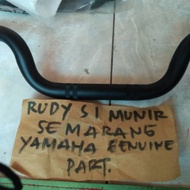 RUDY SI MUNIR
SEMARANG
YAMAHA GENUINE
PART.